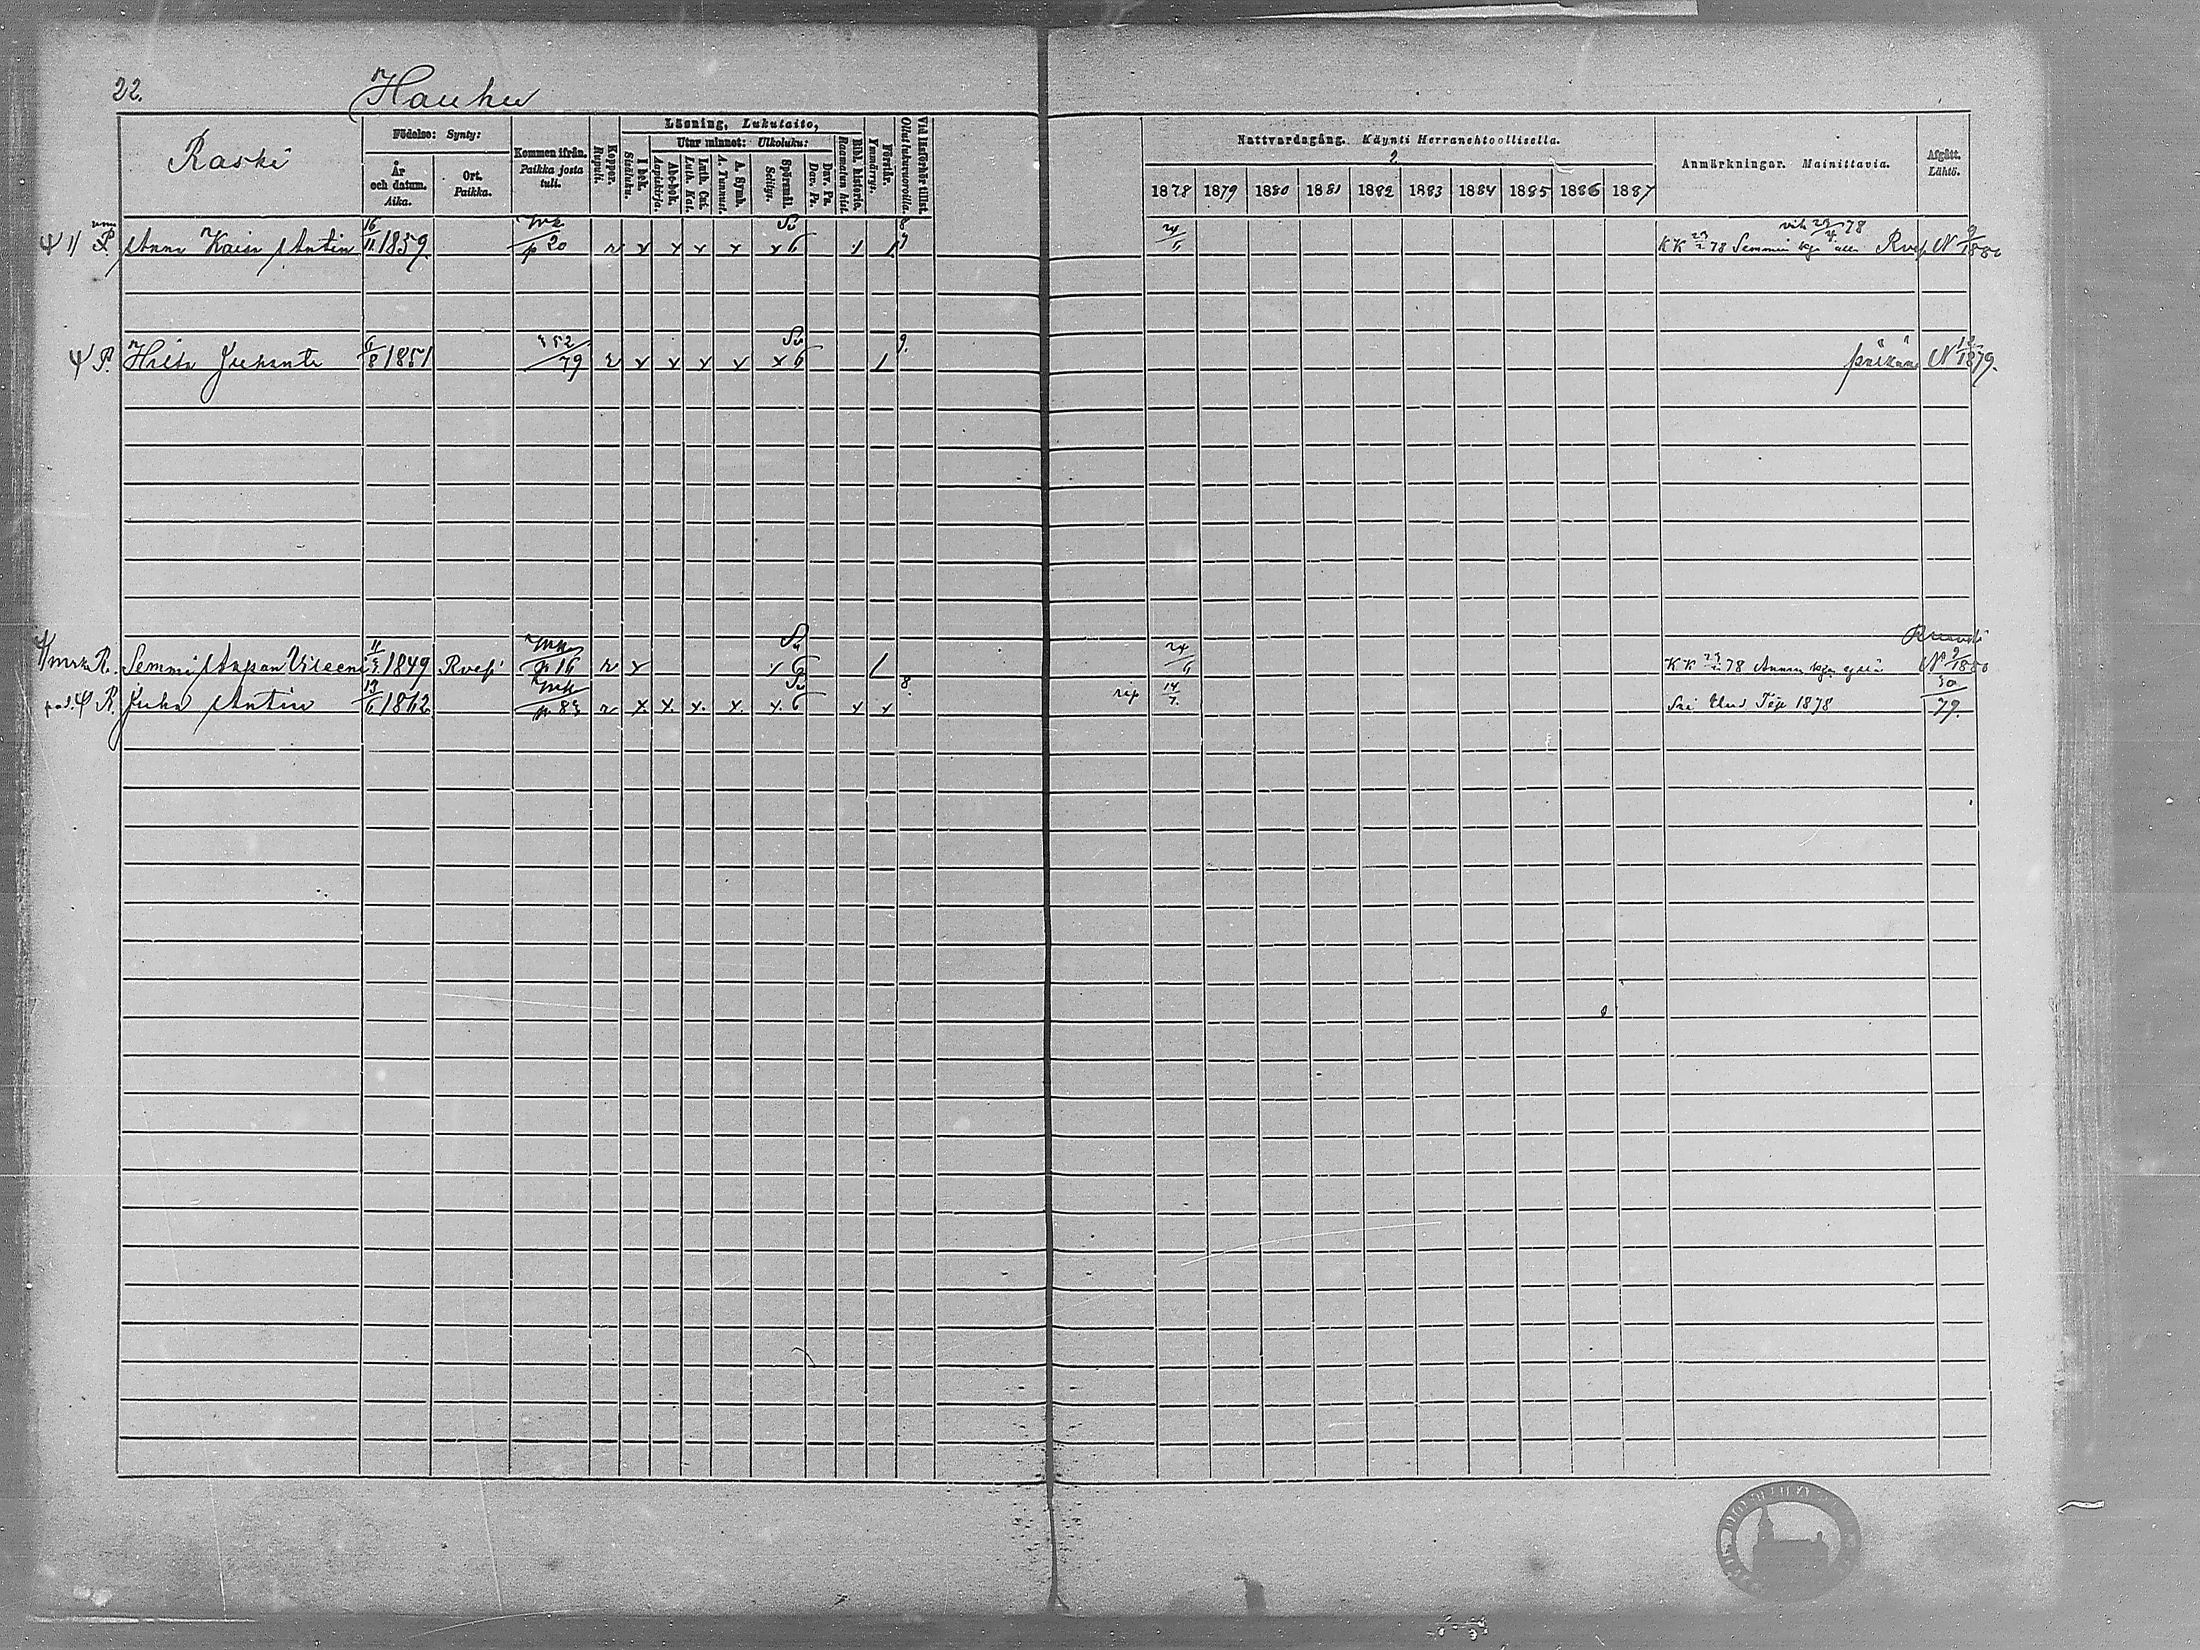 22. Hauhu
Raski
Födelse: Synty:
År och datum. Aika.
Ort. Paikka.
Kommen ifrån. Paikka josta tuli.
Koppor. Rupuli.
Läsning, Lukutaito,
I bok. Sisäluku.
Utur minnet: Ulkoluku:
Abc-bok. Aapiskirja.
Luth. Cat. Luth. Kat.
A. Symb. A. Tunnust.
Spörsmål. Selitys.
Dav. Ps. Dav. Ps.
Bibl. historia. Raamatun hist.
Förstår. Ymmärrys.
Vid läsförhör tillst. Ollut lukuvuoroilla.
Nattvardsgång. Käynti Herranehtoollisella.
2
1878 1879 1880 1881 1882 1883 1884 1885 1886 1887
Anmärkningar. Mainittavia.
Afgått. Lähtö.
P. Anna Kaisa Antin 16/11 1859 p 20 r x x x x x 6 1 1 24/ KK 78 Semmin kgn Rvesi N 9/1880
P. Hilta Juhante /8 1851 352/79 r x x x x x 6 1 9. N 1879.
R. Semmi 11/3 1849 Rvesi p 16 r x 6 1 24/ KK 78 Annan kgn N 9/1880
R. Juha Antin 13/6 1862 p 83 r x. x. x. x. x. 6 x x 8 rip 14/7. 1878 30/79.